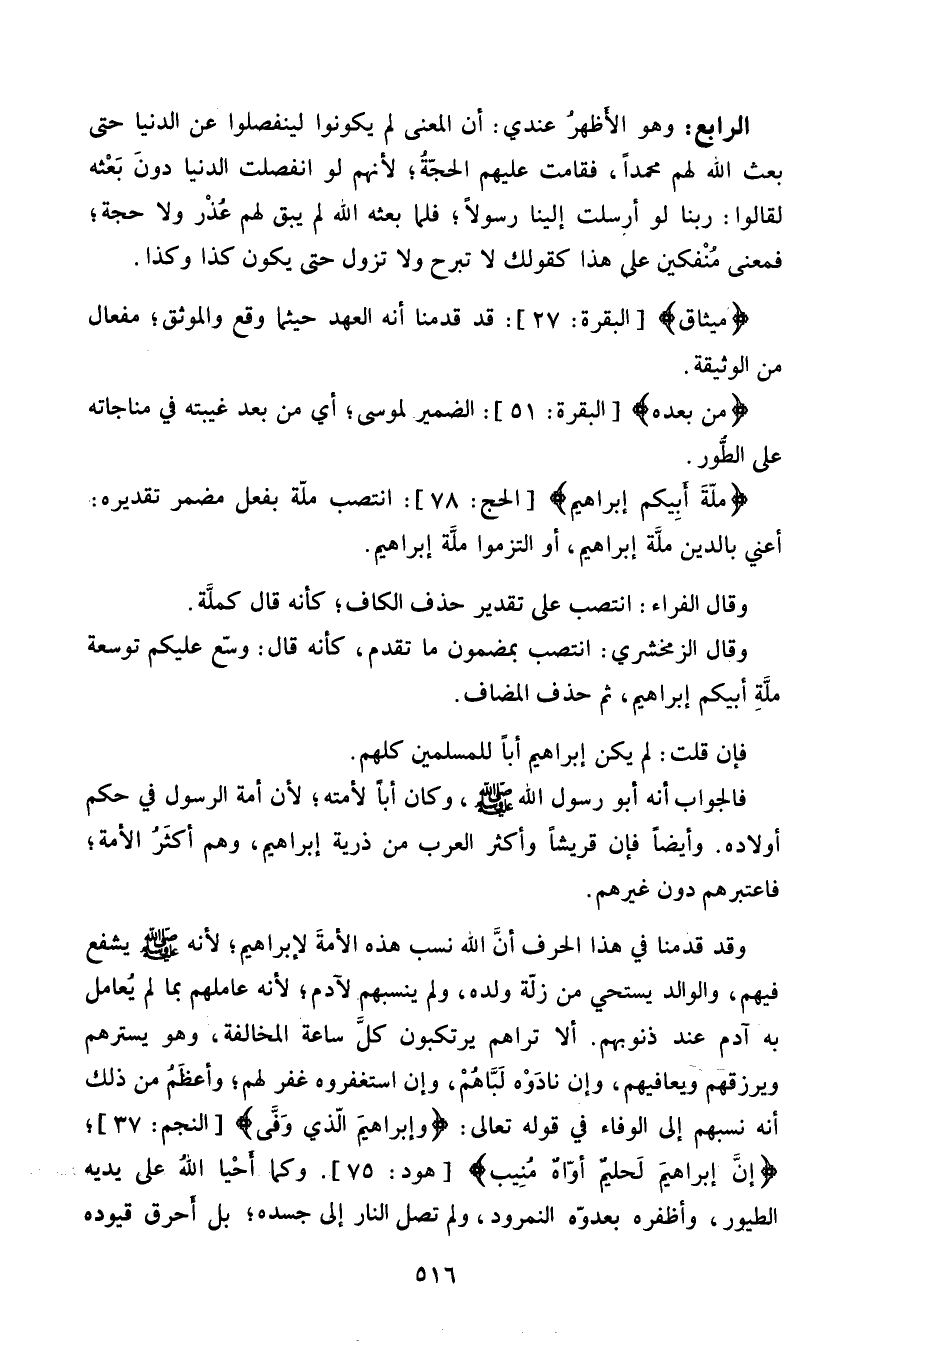 الرابع: وهو الأَظهرُ عندي: أن المعنى لم يكونوا لينفصلوا عن الدنيا حتى
بعث الله لهم محمداً، فقامت عليهم الحجّةُ؛ لأنهم لو انفصلت الدنيا دونَ بَعْثه
لقالوا: ربنا لو أرسلت إلينا رسولاً؛ فلما بعثه الله لم يبق لهم عُذْر ولا حجة؛
فمعنى مُنْفكين على هذا كقولك لا تبرح ولا تزول حتى يكون كذا وكذا.
﴿ميثاق﴾ [البقرة: ٢٧]: قد قدمنا أنه العهد حيثما وقع والموثق؛ مفعال
من الوثيقة.
﴿من بعده﴾ [البقرة: ٥١]: الضمير لموسى؛ أي من بعد غيبته في مناجاته
على الطُّور.
﴿ملّةَ أَبِيكم إبراهيم﴾ [الحج: ٧٨]: انتصب ملّة بفعل مضمر تقديره:
أعني بالدين ملَّة إبراهيم، أو التزموا ملَّة إبراهيم.
وقال الفراء: انتصب على تقدير حذف الكاف؛ كأنه قال كملَّة.
وقال الزمخشري: انتصب بمضمون ما تقدم، كأنه قال: وسّع عليكم توسعة
ملَّةِ أبيكم إبراهيم، ثم حذف المضاف.
فإن قلت: لم يكن إبراهيم أباً للمسلمين كلهم.
فالجواب أنه أبو رسول الله ﷺ، وكان أباً لأمته؛ لأن أمة الرسول في حكم
أولاده. وأيضاً فإن قريشاً وأكثر العرب من ذرية إبراهيم، وهم أكثَرُ الأمة؛
فاعتبرهم دون غيرهم.
وقد قدمنا في هذا الحرف أنَّ الله نسب هذه الأمةَ لإبراهيم؛ لأنه ﷺ يشفع
فيهم، والوالد يستحي من زلّة ولده، ولم ينسبهم لآدم؛ لأنه عاملهم بما لم يُعامل
به آدم عند ذنوبهم. ألا تراهم يرتكبون كلَّ ساعة المخالفة، وهو يسترهم
ويرزقهم ويعافيهم، وإن نادَوْه لَبَّاهُمْ، وإن استغفروه غفر لهم؛ وأعظَمُ من ذلك
أنه نسبهم إلى الوفاء في قوله تعالى: ﴿وإبراهيمَ الّذي وَفَّى﴾ [النجم: ٣٧]؛
﴿إنَّ إبراهيمَ لَحليمٌ أوّاهٌ مُنِيب﴾ [هود: ٧٥]. وكما أَحْيا اللهُ على يديه
الطيور، وأظفره بعدوّه النمرود، ولم تصل النار إلى جسده؛ بل أَحرق قيوده
٥١٦